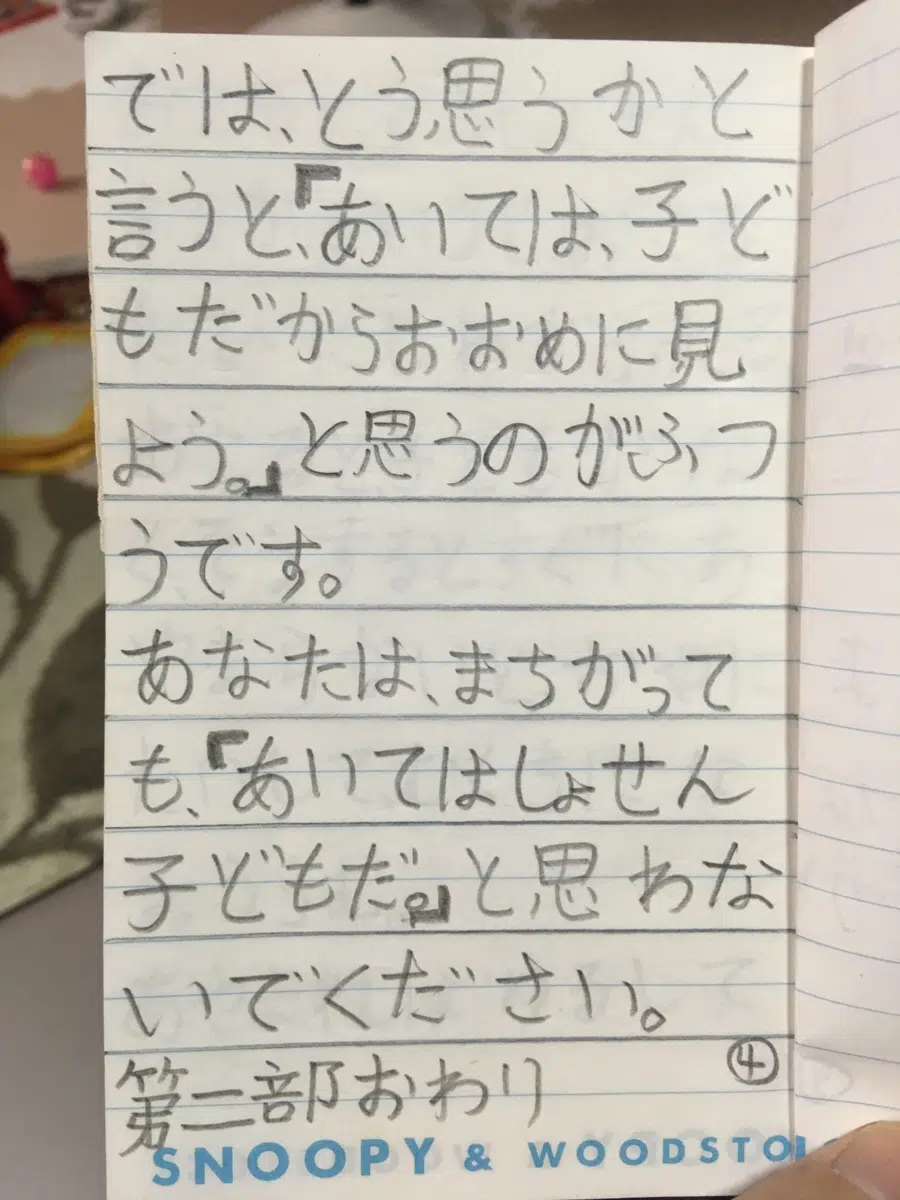 では、とう思うかと
言うと、『あいては、子ど
もだからおおめに見
よう。』と思うのがふつ
うです。
あなたは、まちがって
も、『あいてはしょせん
子どもだ。』と思わな
いでください。
第二部おわり ④
SNOOPY & WOODSTO